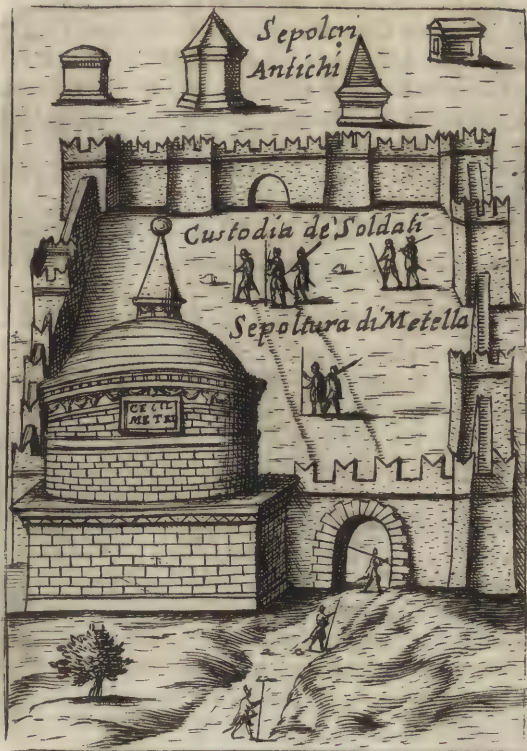 Sepolcri
Antichi
Custodia de' Soldati
Sepoltura di Metella
CECIL
METEL